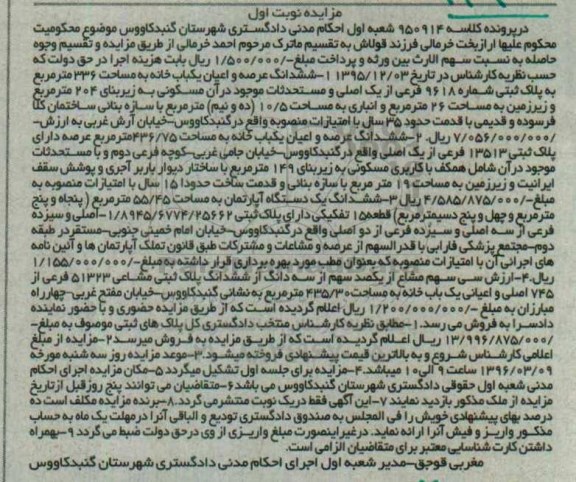 مزایده نوبت اول
درپرونده کلاسه ۹۵۰۹۱۴ شعبه اول احکام مدنی دادگستری شهرستان گنبدکاووس موضوع محکومیت
محکوم علیها ارازبخت خرمالی فرزند قولاش به تقسیم ماترک مرحوم احمد خرمالی از طریق مزایده و تقسیم وجوه
حاصله به نسبت سهم الارث بین ورثه و پرداخت مبلغ-/۱/۵۰۰/۰۰۰ ریال بابت هزینه اجرا در حق دولت که
حسب نظریه کارشناس در تاریخ ۱۳۹۵/۱۲/۰۳ ۱-ششدانگ عرصه و اعیان یکباب خانه به مساحت ۳۳۶ مترمربع
به پلاک ثبتی شماره ۹۶۱۸ فرعی از یک اصلی و مستحدثات موجود در آن مسکونی به زیربنای ۲۰۴ مترمربع
و زیرزمین به مساحت ۲۶ مترمربع و انباری به مساحت ۱۰/۵ (ده و نیم) مترمربع با سازه بنائی ساختمان کلا
فرسوده و قدیمی با قدمت حدود ۳۵ سال با امتیازات منصوبه واقع درگنبدکاووس-خیابان آرش غربی به ارزش-
/۷/۰۵۶/۰۰۰/۰۰۰ ریال. ۲-ششدانگ عرصه و اعیان یکباب خانه به مساحت ۴۳۶/۷۵مترمربع عرصه دارای
پلاک ثبتی ۱۳۵۱۳ فرعی از یک اصلی واقع درگنبدکاووس-خیابان جامی غربی-کوچه فرعی دوم و با مستحدثات
موجود در آن شامل همکف با کاربری مسکونی به زیربنای ۱۴۹ مترمربع با ساختار دیوار باربر آجری و پوشش سقف
ایرانیت و زیرزمین به مساحت ۱۹ متر مربع با سازه بنائی و قدمت ساخت حدودا ۱۵ سال با امتیازات منصوبه به
مبلغ-/۴/۵۸۵/۸۷۵/۰۰۰ ریال ۳-ششدانگ یک دستگاه آپارتمان به مساحت ۵۵/۴۵ مترمربع (پنجاه و پنج
مترمربع و چهل و پنج دسیمترمربع) قطعه۱۵ تفکیکی دارای پلاک ثبتی ۱/۸۹۴۵/۶۷۷۴/۲۵۶۶۲-اصلی و سیزده
فرعی از سه اصلی و سیزده فرعی از دو اصلی واقع درگنبدکاووس-خیابان امام خمینی جنوبی-مستقر در طبقه
دوم-مجتمع پزشکی فارابی با قدر السهم از عرصه و مشاعات و مشترکات طبق قانون تملک آپارتمان ها و آئین نامه
های اجرائی آن با امتیازات منصوبه که بعنوان مطب مورد بهره برداری قرار داشته به مبلغ-/۱/۱۵۵/۰۰۰/۰۰۰
ریال.۴-ارزش سی سهم مشاع از یکصد سهم از سه دانگ از ششدانگ پلاک ثبتی مشاعی ۵۱۳۲۳ فرعی از
۷۴۵ اصلی و اعیانی یک باب خانه به مساحت۴۳۵/۳۰ مترمربع به نشانی گنبدکاووس-خیابان مفتح غربی-چهارراه
مبارزان به مبلغ -/۱/۲۰۰/۰۰۰/۰۰۰ ریال اعلام گردیده است که از طریق مزایده حضوری و با حضور نماینده
دادسرا به فروش می رسد.۱-مطابق نظریه کارشناس منتخب دادگستری کل پلاک های ثبتی موصوف به مبلغ-
/۱۳/۹۹۶/۸۷۵/۰۰۰ ریال اعلام گردیده است که از طریق مزایده به فروش میرسد۲-مزایده از مبلغ
اعلامی کارشناس شروع و به بالاترین قیمت پیشنهادی فروخته میشود.۳-موعد مزایده روز سه شنبه مورخه
۱۳۹۶/۰۳/۰۹ ساعت ۹ الی۱۰ میباشد.۴-مزایده برای جلسه اول تشکیل میگردد ۵-مکان مزایده اجرای احکام
مدنی شعبه اول حقوقی دادگستری شهرستان گنبدکاووس می باشد۶-متقاضیان می توانند پنج روز قبل ازتاریخ
مزایده از ملک مذکور بازدید نمایند ۷-این آگهی فقط در یک نوبت منتشر می گردد.۸-برنده مزایده مکلف است ده
درصد بهای پیشنهادی خویش را فی المجلس به صندوق دادگستری تودیع و الباقی آنرا درمهلت یک ماه به حساب
مذکور واریز و فیش آنرا ارائه نماید. درغیر اینصورت مبلغ واریزی از وی در حق دولت ضبط می گردد ۹-بهمراه
داشتن کارت شناسایی معتبر برای متقاضیان الزامی است.
مغربی قوجق-مدیر شعبه اول اجرای احکام مدنی دادگستری شهرستان گنبدکاووس